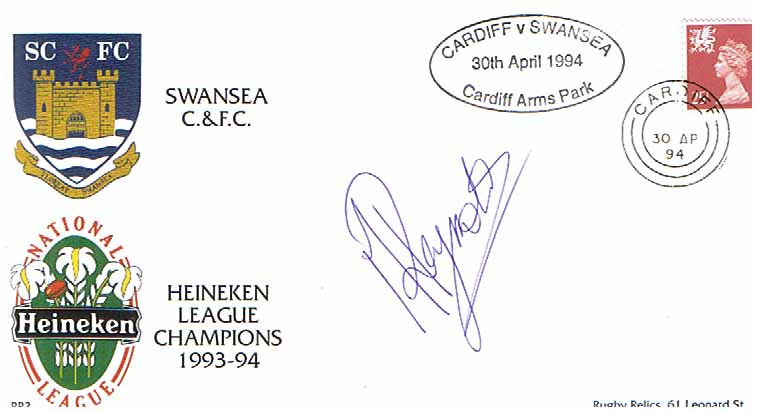 SC FC
FLOREAT SWANSEA
SWANSEA
C.&F.C.
CARDIFF v SWANSEA
30th April 1994
Cardiff Arms Park
CARDIFF
30 AP
94
NATIONAL
Heineken
LEAGUE
HEINEKEN
LEAGUE
CHAMPIONS
1993-94
Rugby Relics, 61 Leonard St